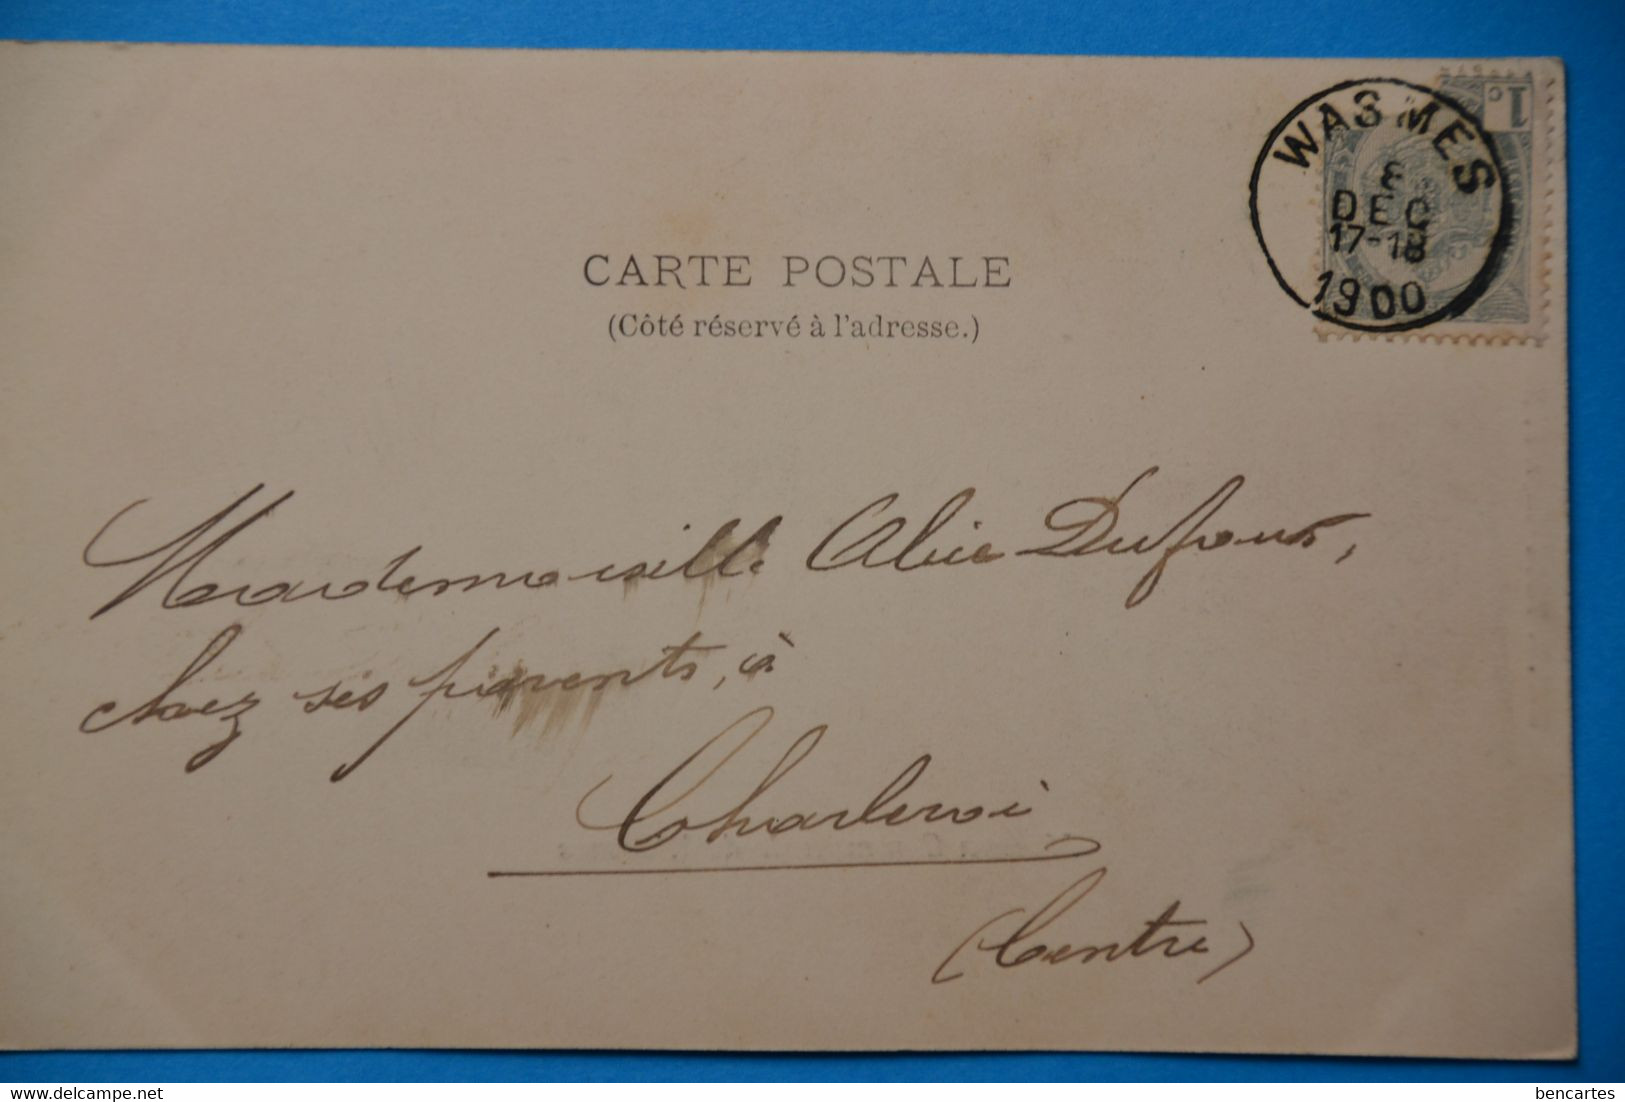 WASMES
DEC
17-18
1900
1 c
CARTE POSTALE
(Côté réservé à l'adresse.)
Mademoiselle Alice Dufour,
chez ses parents, à
Charleroi
(Centre)
https://www.delcampe.net
bencartes